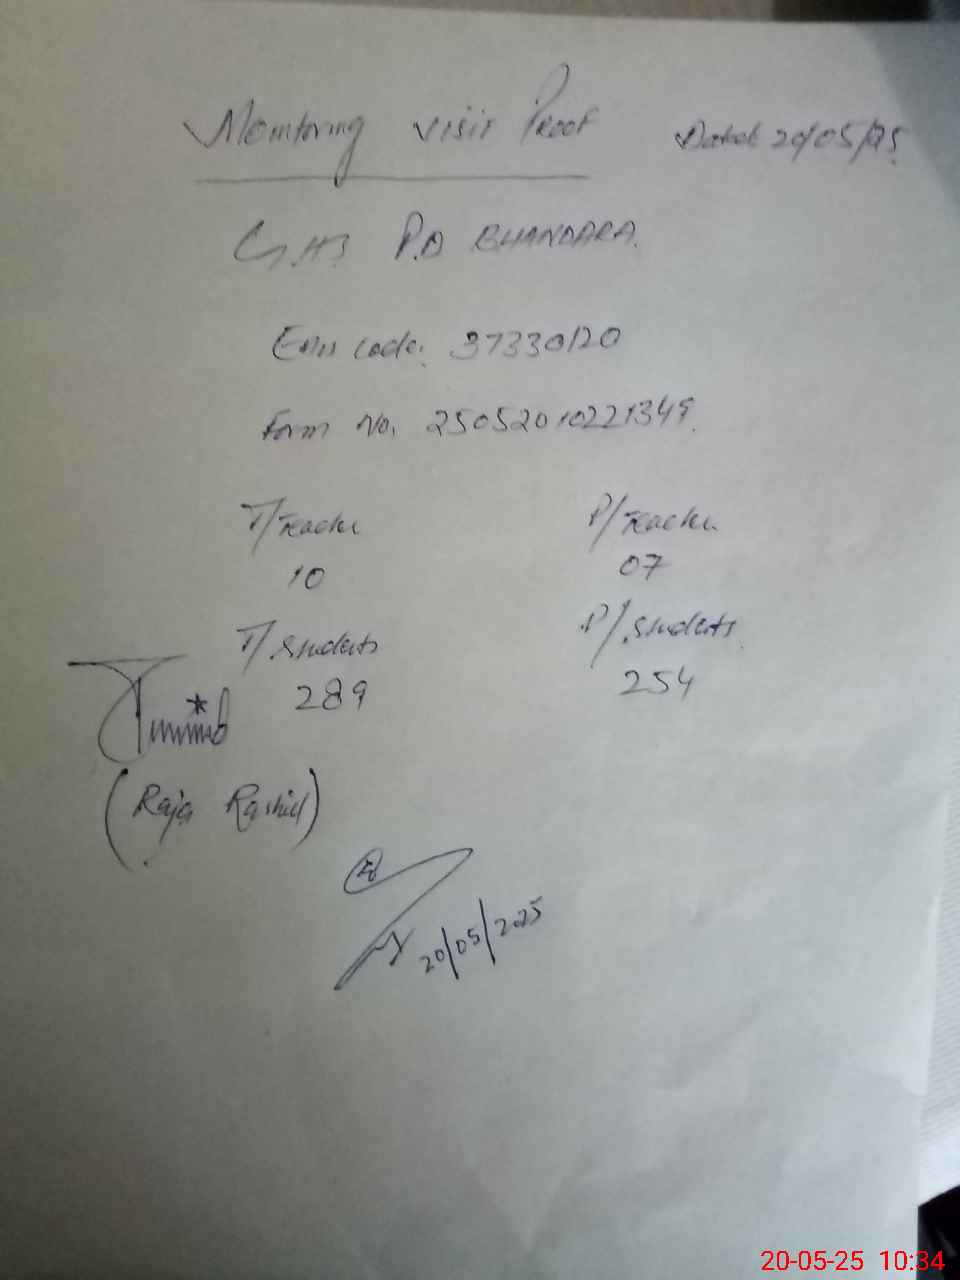 Monitoring visit Proof Dated 20/05/25
G.H.S P.D BHANDARA.
Emis code: 37330120
Form No. 25052010221349.
T/Teacher P/Teacher
10 07
T/Students P/Students
289 254
(Raja Rashid)
20/05/2025
20-05-25 10:34